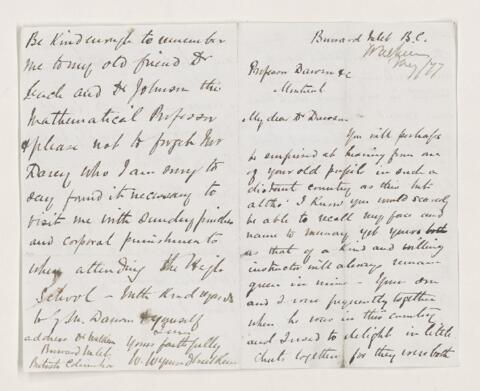 Burrard Inlet B.C.
May /77
Professor Dawson &c
Montreal
My dear Dr Dawson
You will perhaps
be surprised at hearing from one
of your old pupils in such a
distant country as this but
altho' I know you would scarcely
be able to recall my face and
name to memory yet yours both
as that of a kind and willing
instructor will always remain
green in mine - Your son
and I were frequently together
when he was in this country
and I used to delight in little
chats together for they were both
Be kind enough to remember
me to my old friend Dr
Leach and Dr Johnson the
Mathematical Professor
& please not to forget Mr
Darey who I am sorry to
say found it necessary to
visit me with sundry
and corporal punishment
when attending the High
School - With kind regards
to G. M. Dawson & yourself
address Dr
Burrard Inlet Yours faithfully
British Columbia W.